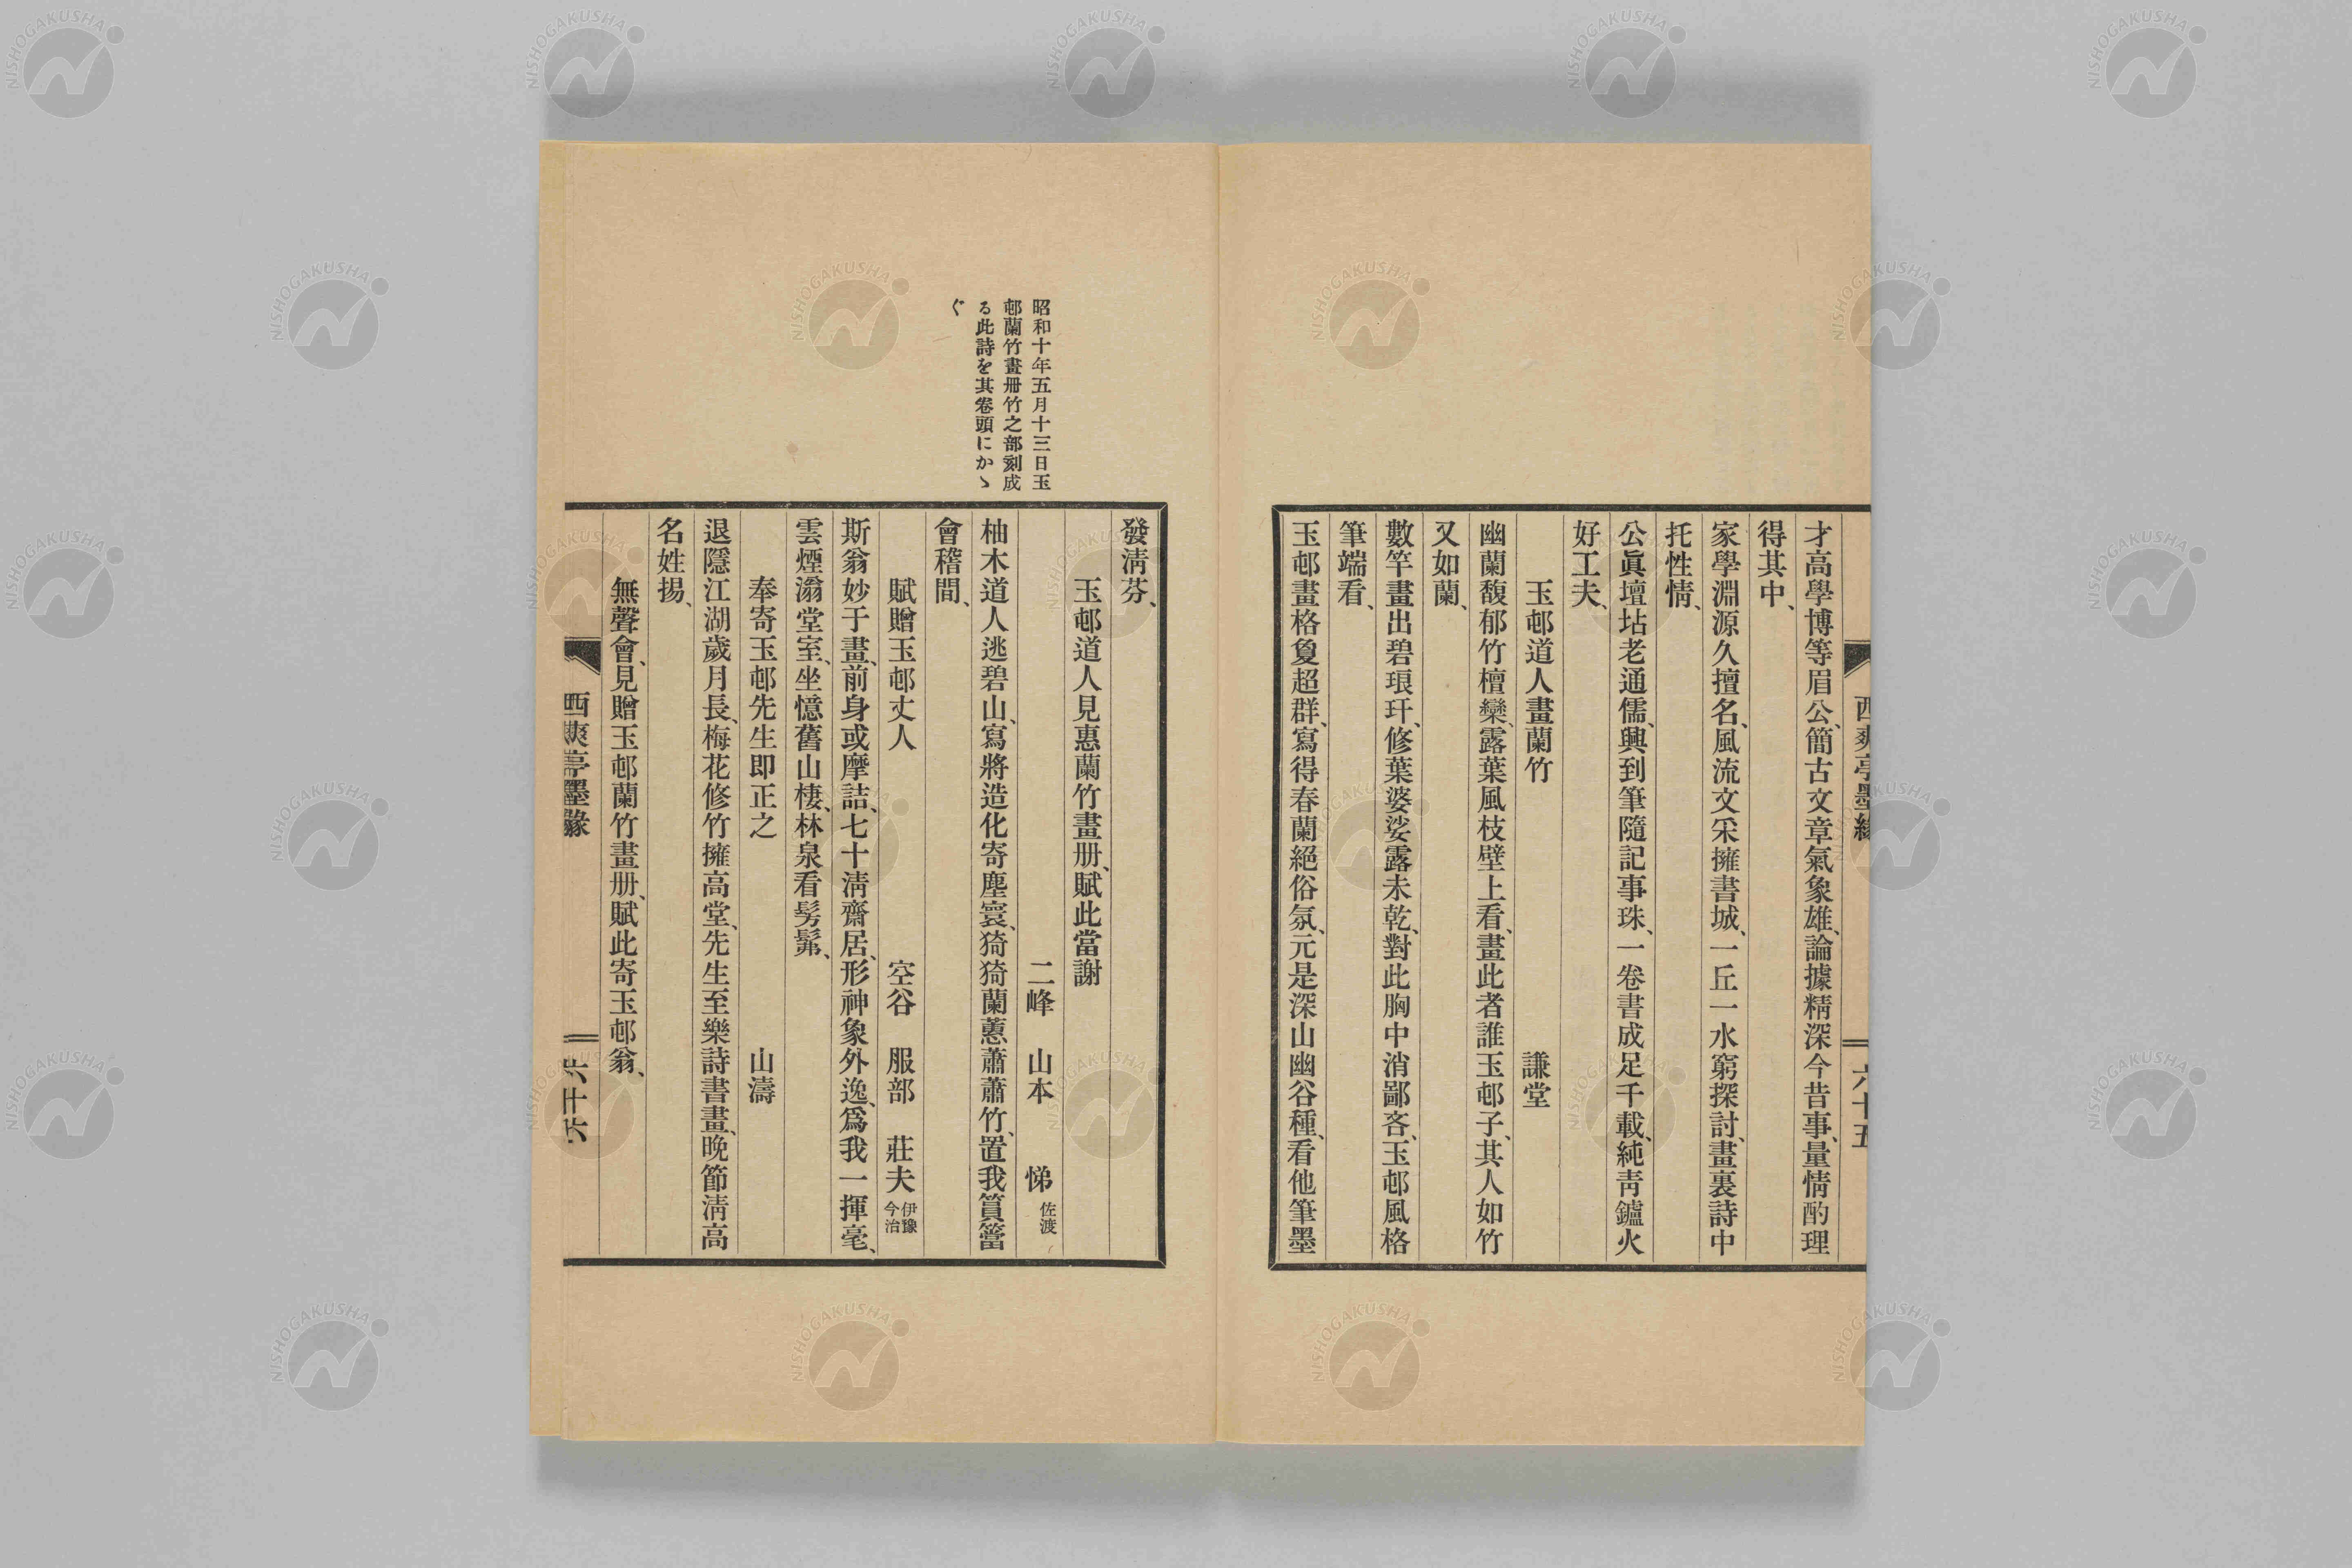 西爽亭墨緣
六十五
才高學博等眉公、簡古文章氣象雄、論據精深今昔事、量情酌理
得其中、
家學淵源久擅名、風流文采擁書城、一丘一水窮探討、畫裏詩中
托性情、
公眞壇坫老通儒、興到筆隨記事珠、一卷書成足千載、純靑鑪火
好工夫、
玉邨道人畫蘭竹　謙堂
幽蘭馥郁竹檀欒、露葉風枝壁上看、畫此者誰玉邨子、其人如竹
又如蘭、
數竿畫出碧琅玕、修葉婆娑露未乾、對此胸中消鄙吝、玉邨風格
筆端看、
玉邨畫格敻超群、寫得春蘭絕俗氛、元是深山幽谷種、看他筆墨
發淸芬、
昭和十年五月十三日玉
邨蘭竹畫册竹之部刻成
る此詩を其卷頭にかゝ
ぐ
玉邨道人見惠蘭竹畫册、賦此當謝
二峰　山本　悌 佐渡
柚木道人逃碧山、寫將造化寄塵寰、猗猗蘭蕙蕭蕭竹、置我篔簹
會稽間、
賦贈玉邨丈人　空谷　服部　莊夫 伊豫今治
斯翁妙于畫、前身或摩詰、七十淸齋居、形神象外逸、爲我一揮毫、
雲煙滃堂室、坐憶舊山棲、林泉看髣髴、
奉寄玉邨先生即正之　山濤
退隱江湖歲月長、梅花修竹擁高堂、先生至樂詩書畫、晚節淸高
名姓揚、
無聲會、見贈玉邨蘭竹畫册、賦此寄玉邨翁、
西爽亭墨緣
六十六
NISHOGAKUSHA